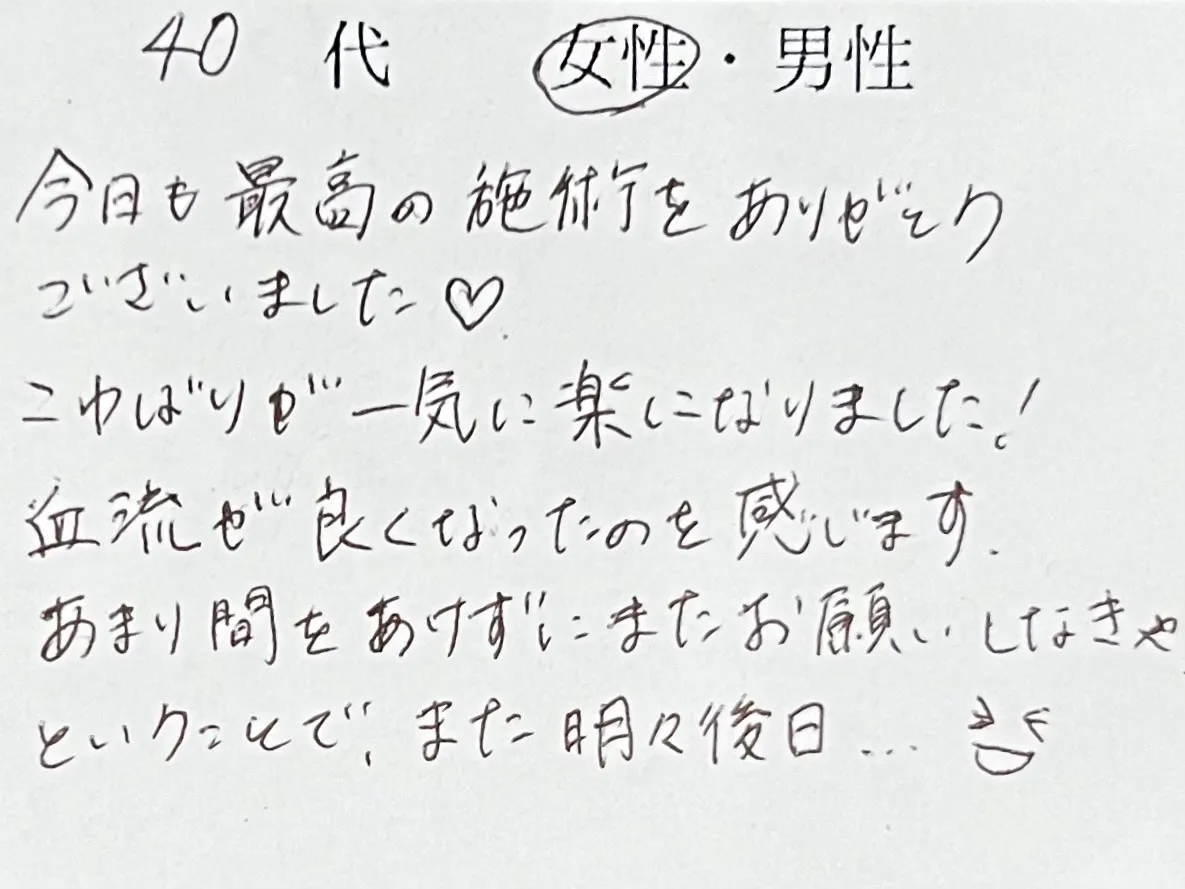 40 代 女性・男性
今日も最高の施術をありがとう
ございました♡
こわばりが一気に楽になりました!
血流が良くなったのを感じます.
あまり間をあけずにまたお願いしなきゃ
ということで、また明々後日...